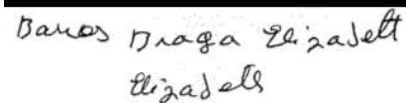 Barros Braga Elizabett
Elizabett